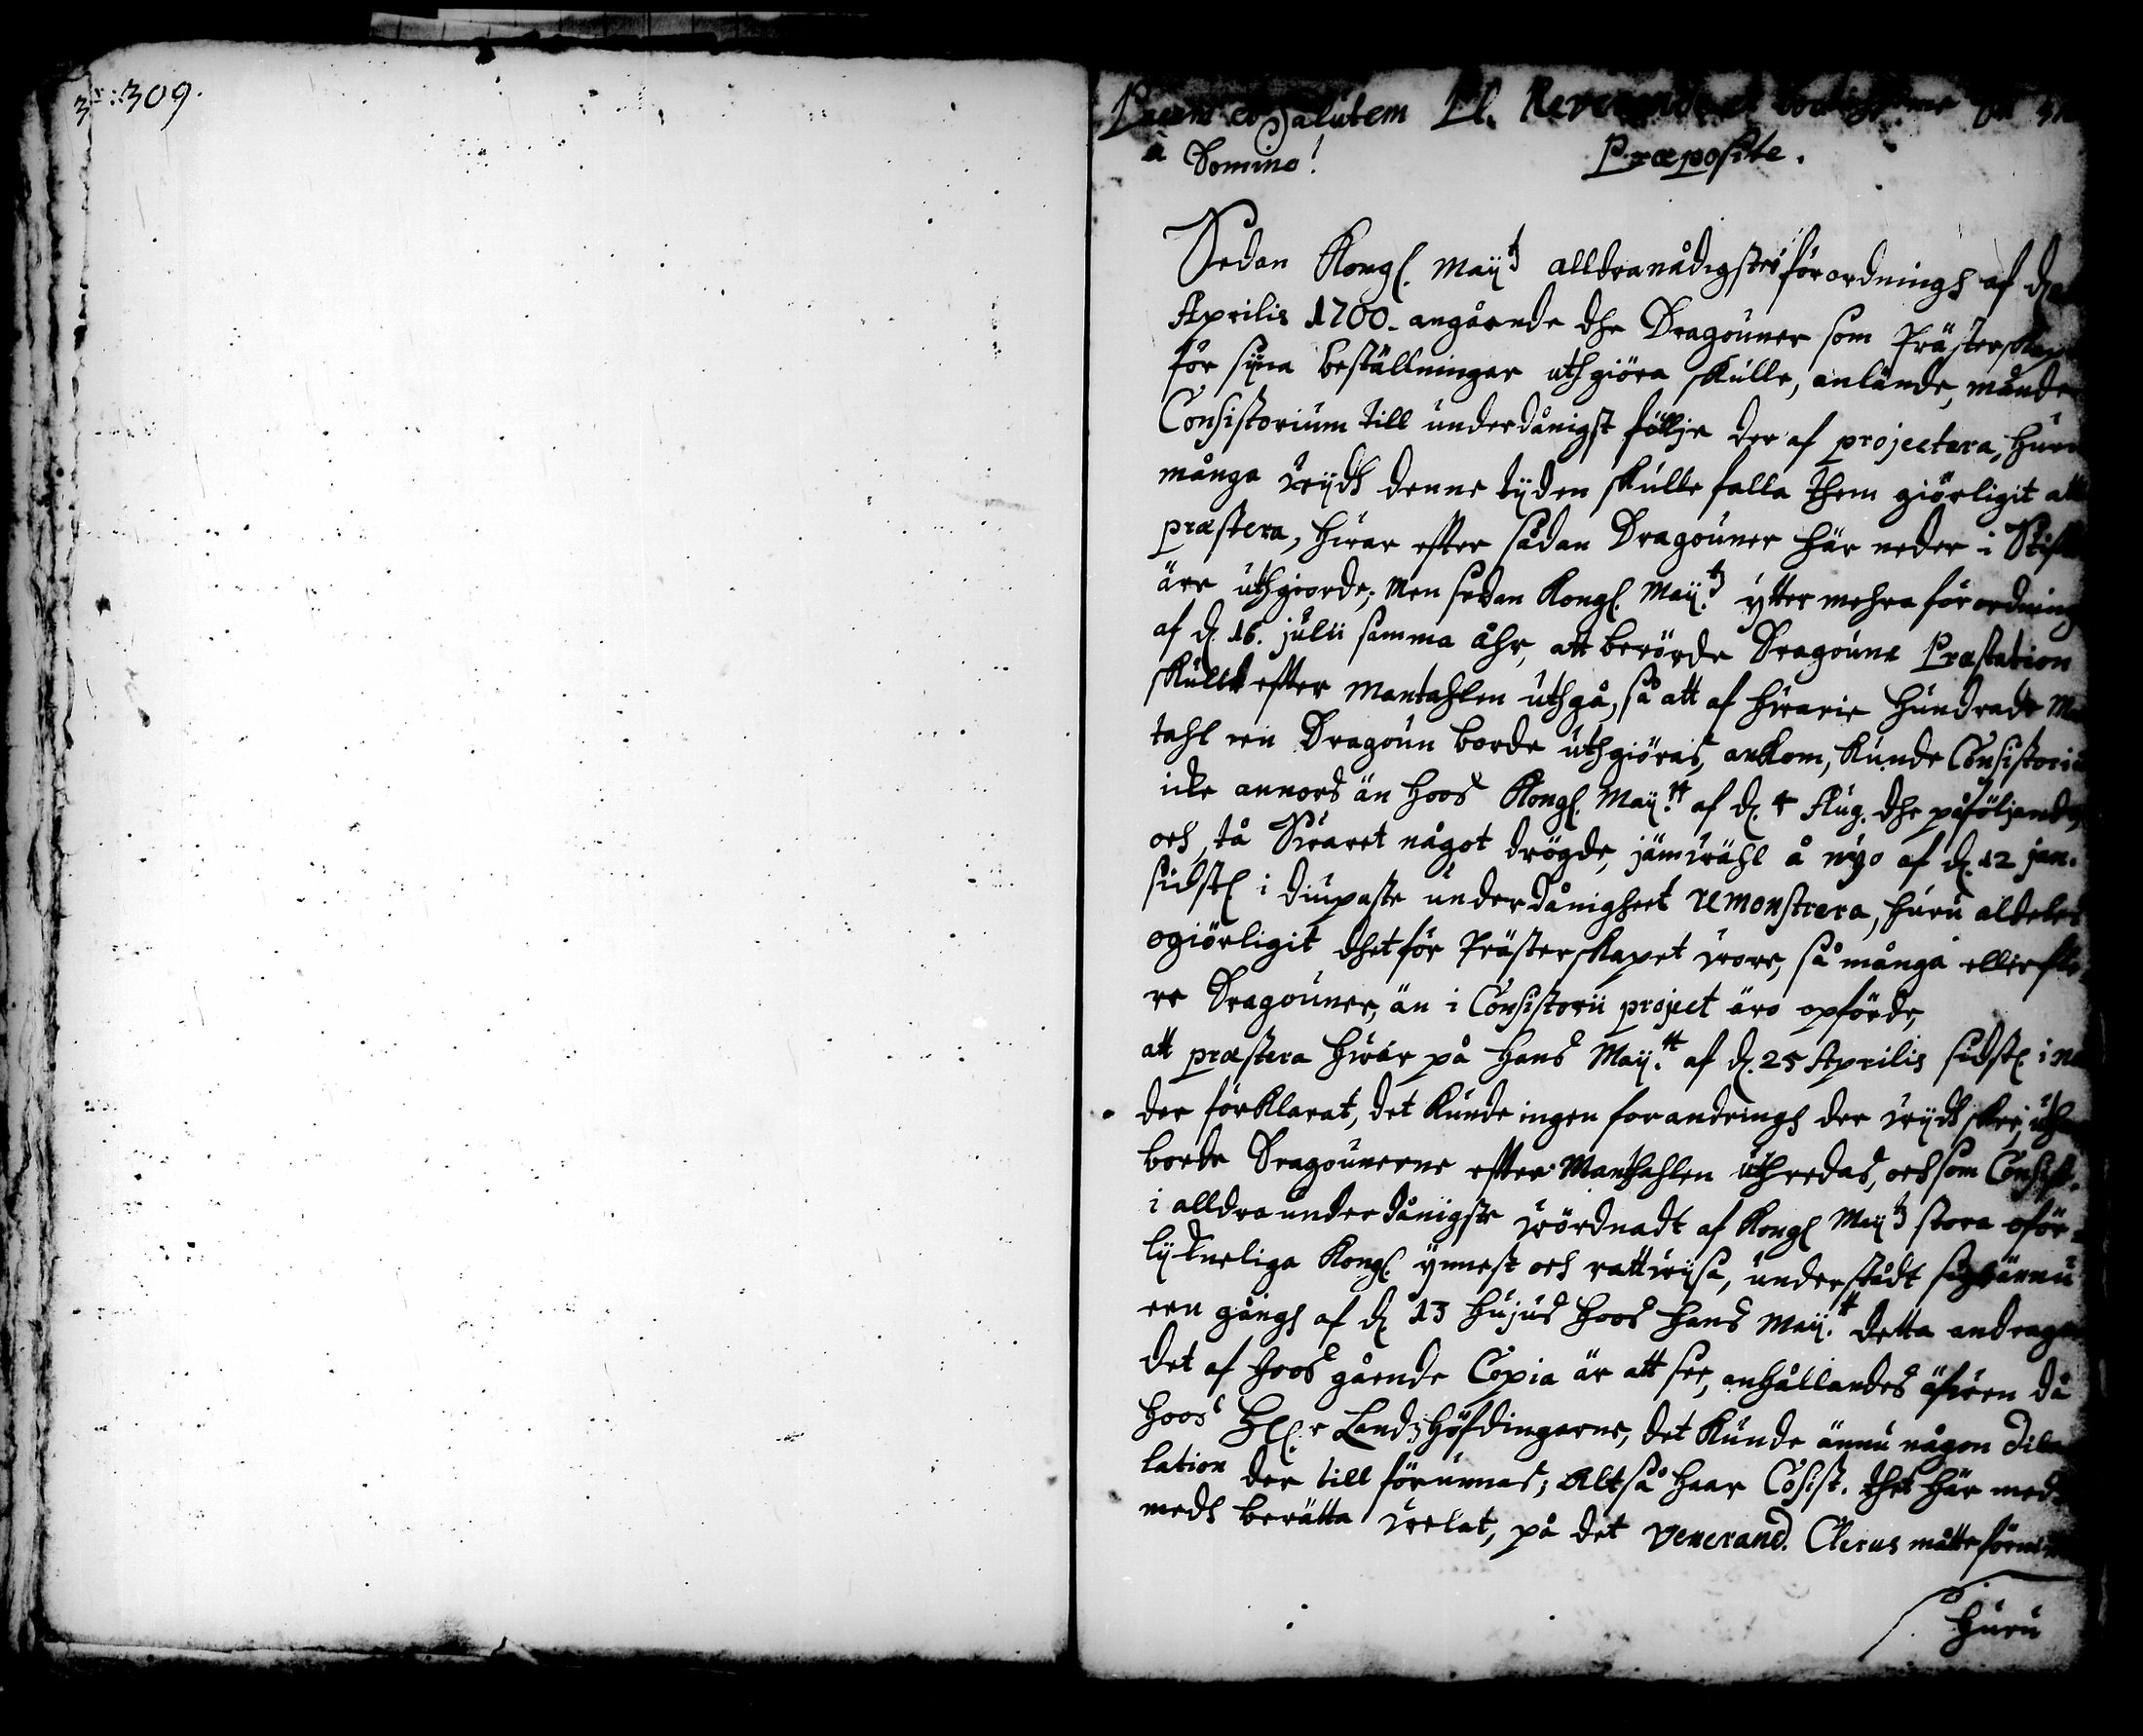 309.
Pacem et Salutem Pl. Reverende et
à Domino!
Præposite.
Sedan Kongl. Maÿtz alldranådigste förordningh af d.
Aprilis 1700. angående dhe Dragouner som Prästerskap
för sijna beställningar uthgiöra skulle, anlände, månde
Consistorium till underdånigst föllje der af projectera, huru
många vijdh denne tijden skulle falla them giörligit att
præstera, hwar effter sådan Dragouner här neder i Stift
äre uthgiorde; Men sedan Kongl. Maÿtz ytter mehra förordning
af d. 16. julii samma åhr, att berörde Dragoune Præstation
skulle effter Mantahlen uthgå, så att af hwarie Hundrade Man
tahl een Dragoun borde uthgiöras, ankom, kunde Consistorium
icke annors än hoos Kongl. Maÿtt af d. 4 Aug. dhe påföljande,
och tå Swaret något drögde, jämwähl å nyo af d. 12 jan.
sidstl. i diupaste underdånigheet remonstrera, huru aldeles
ogiörligit dhet för Prästerskapet wore, så många eller fle-
re Dragouner, än i Consistorii project äro opförde,
att præstera hwar på Hans Maÿtt af d. 25 Aprilis sidstl. i nå
der förklarat, det kunde ingen forandringh der vijdh skee, uthan
borde Dragounerne effter Manthahlen uthredas, och som Consist.
i alldraunderdånigste wördnadt af Kongl Maÿtz stora oför-
lijkneliga Kongl. ynnest och rattwijsa, understådt sig ännu
een gångh af d. 13 hujus hoos Hans Maÿtt detta andraga
det af hoos gående Copia är att see, anhållandes äfwen då
hoos H.r Landzhöfdingarne, det kunde ännu någon dila
lation der till förunnas; Altså haar Cosist. thet här med-
medh berätta welat, på det Venerand. Clerus måtte förni
huru